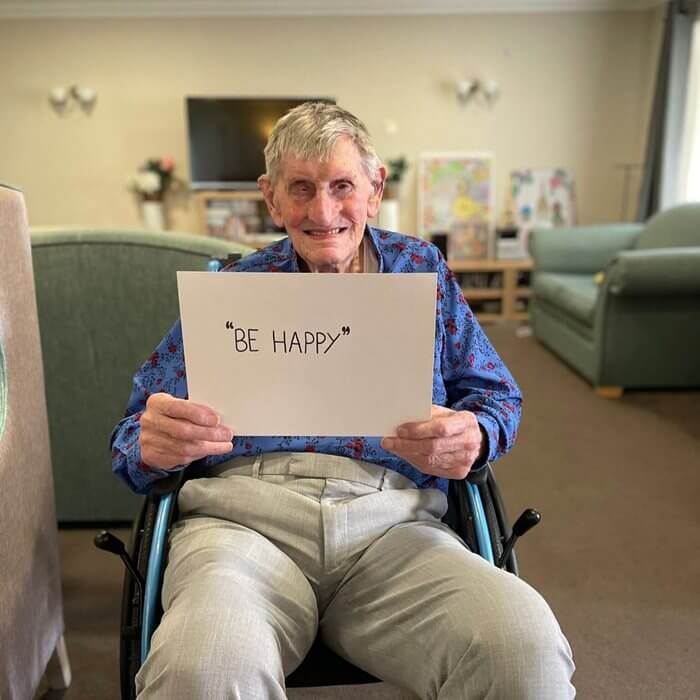 “BE HAPPY”